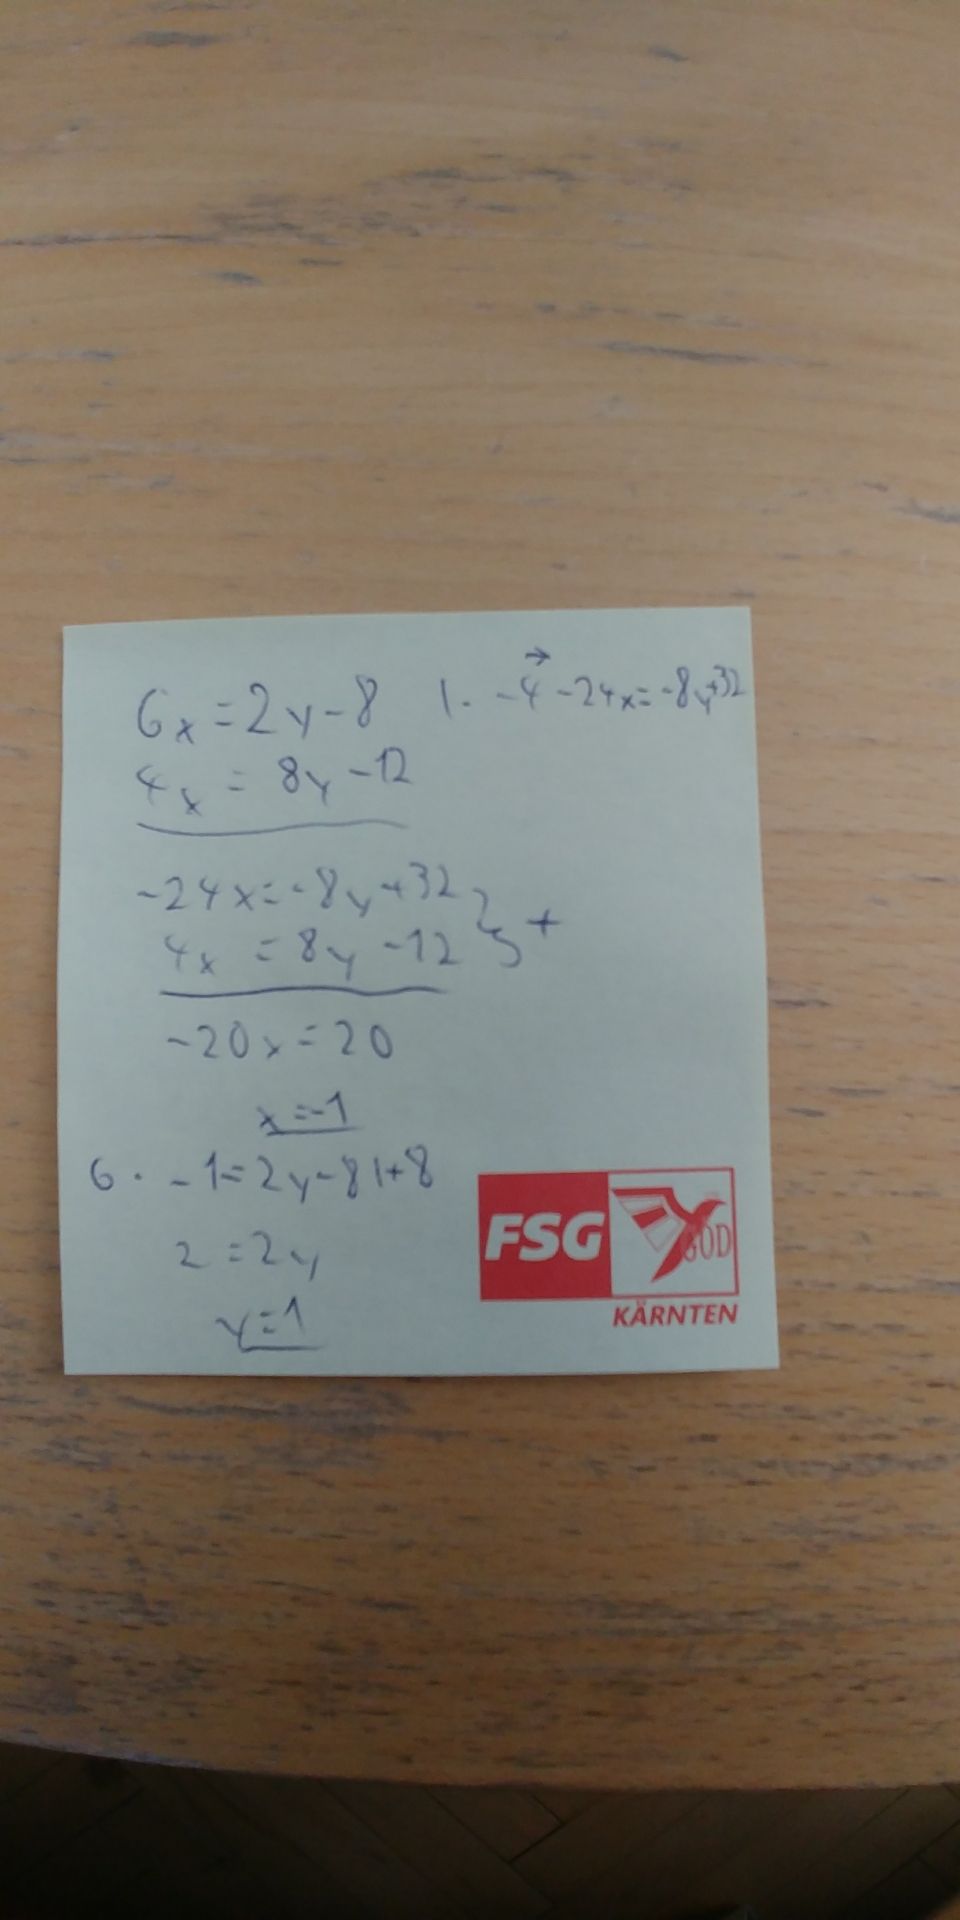 6x = 2y - 8 | · -4 → -24x = -8y + 32
4x = 8y - 12
-24x = -8y + 32 } +
4x = 8y - 12
-20x = 20
x = -1
6 · -1 = 2y - 8 | + 8
2 = 2y
y = 1
FSG GÖD
KÄRNTEN